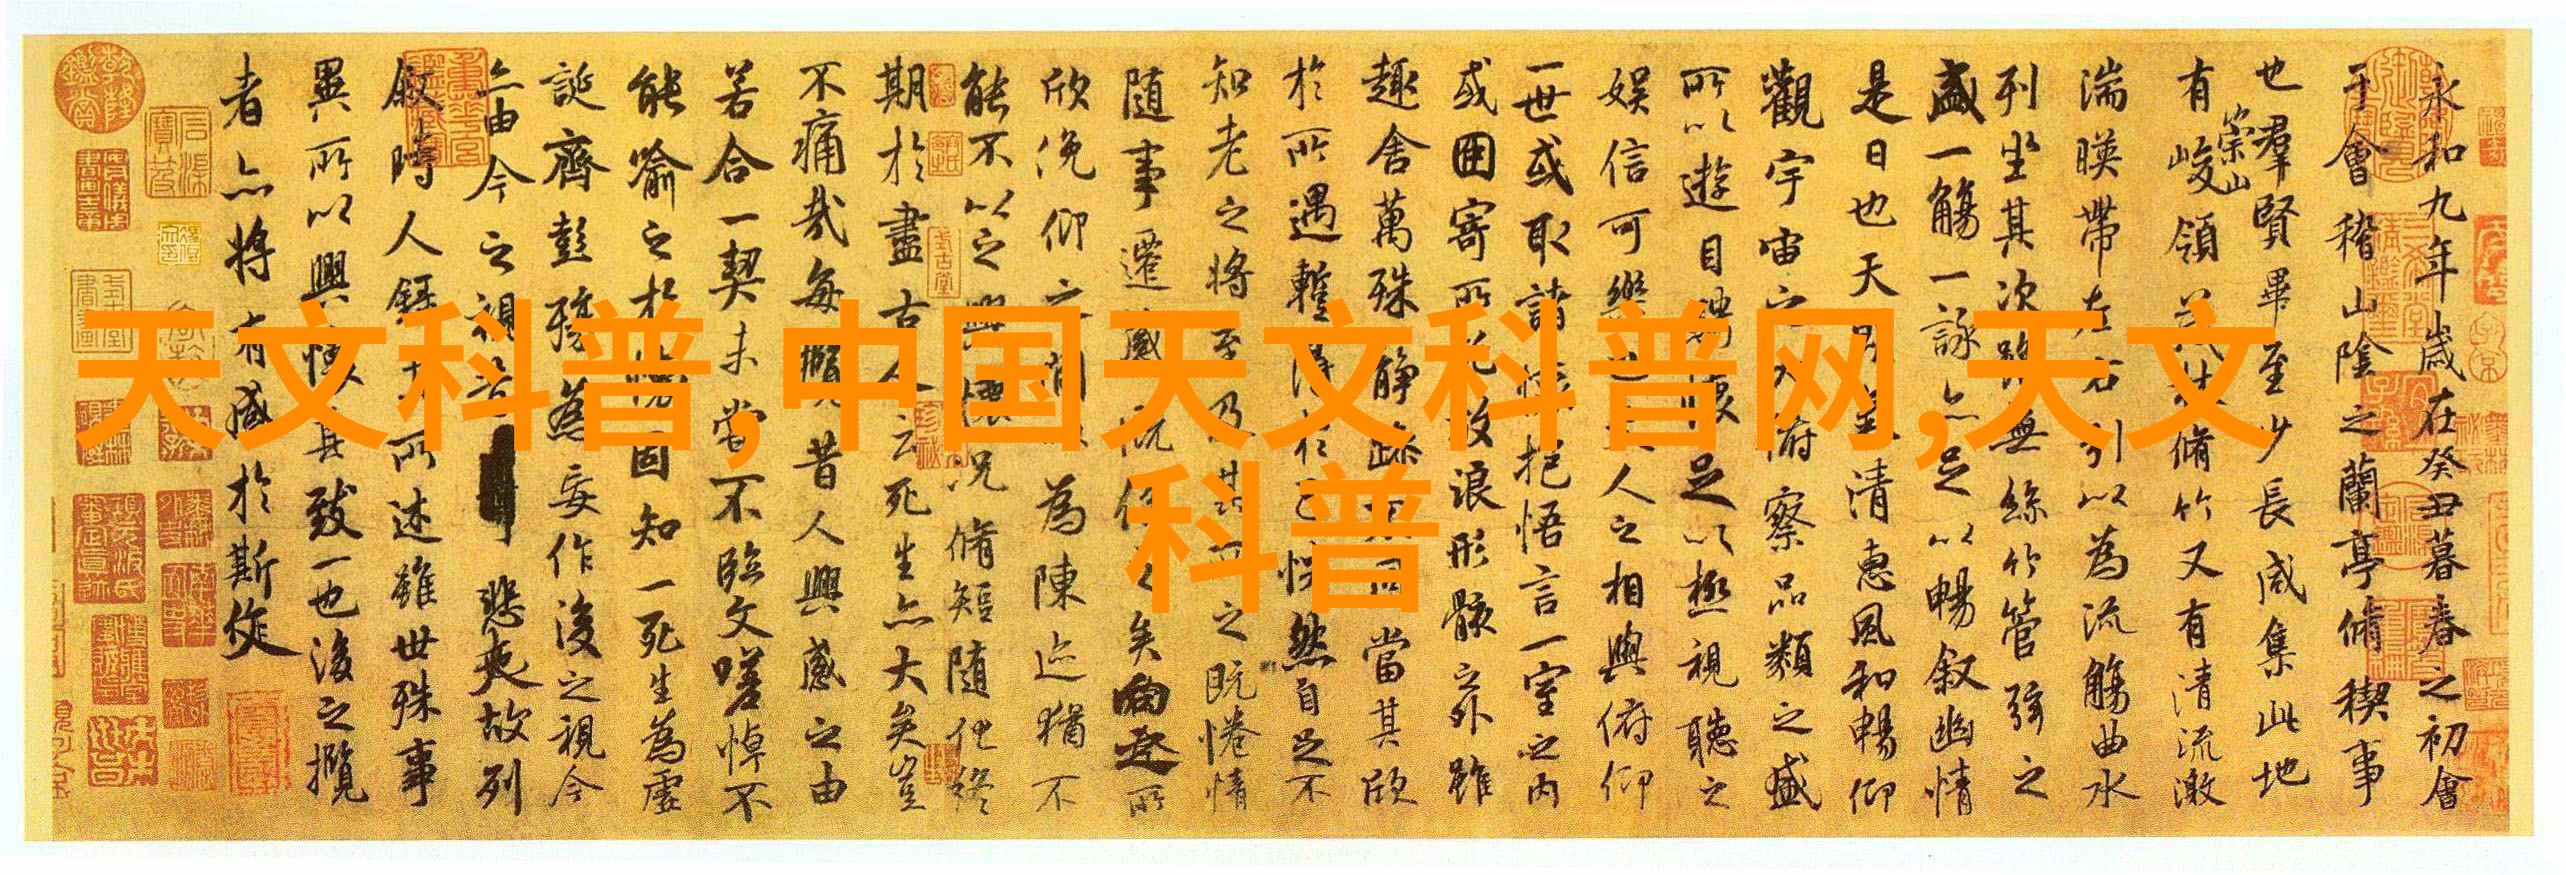 天文科普,中国天文科普网,天文
科普
永和九年歲在癸丑暮春之初會
于會稽山陰之蘭亭脩稧事
也羣賢畢至少長咸集此地
有崇山峻領茂林脩竹又有清流激
湍暎帶左右引以為流觴曲水
列坐其次雖無絲竹管弦之
盛一觴一詠亦足以暢叙幽情
是日也天朗氣清惠風和暢仰
觀宇宙之大俯察品類之盛
所以遊目騁懷足以極視聽之
娛信可樂也夫人之相與俯仰
一世或取諸懷抱悟言一室之內
或因寄所託放浪形骸之外雖
趣舍萬殊靜躁不同當其欣
於所遇暫得於己怏然自足不
知老之將至及其所之既惓情
隨事遷感慨係之矣向之所
欣俛仰之閒以為陳迹猶不
能不以之興懷況脩短隨化終
期於盡古人云死生亦大矣豈
不痛哉每攬昔人興感之由
若合一契未嘗不臨文嗟悼不
能喻之於懷固知一死生為虛
誕齊彭殤為妄作後之視今
亦由今之視昔悲夫故列
叙時人錄其所述雖世殊事
異所以興懷其致一也後之攬
者亦將有感於斯文